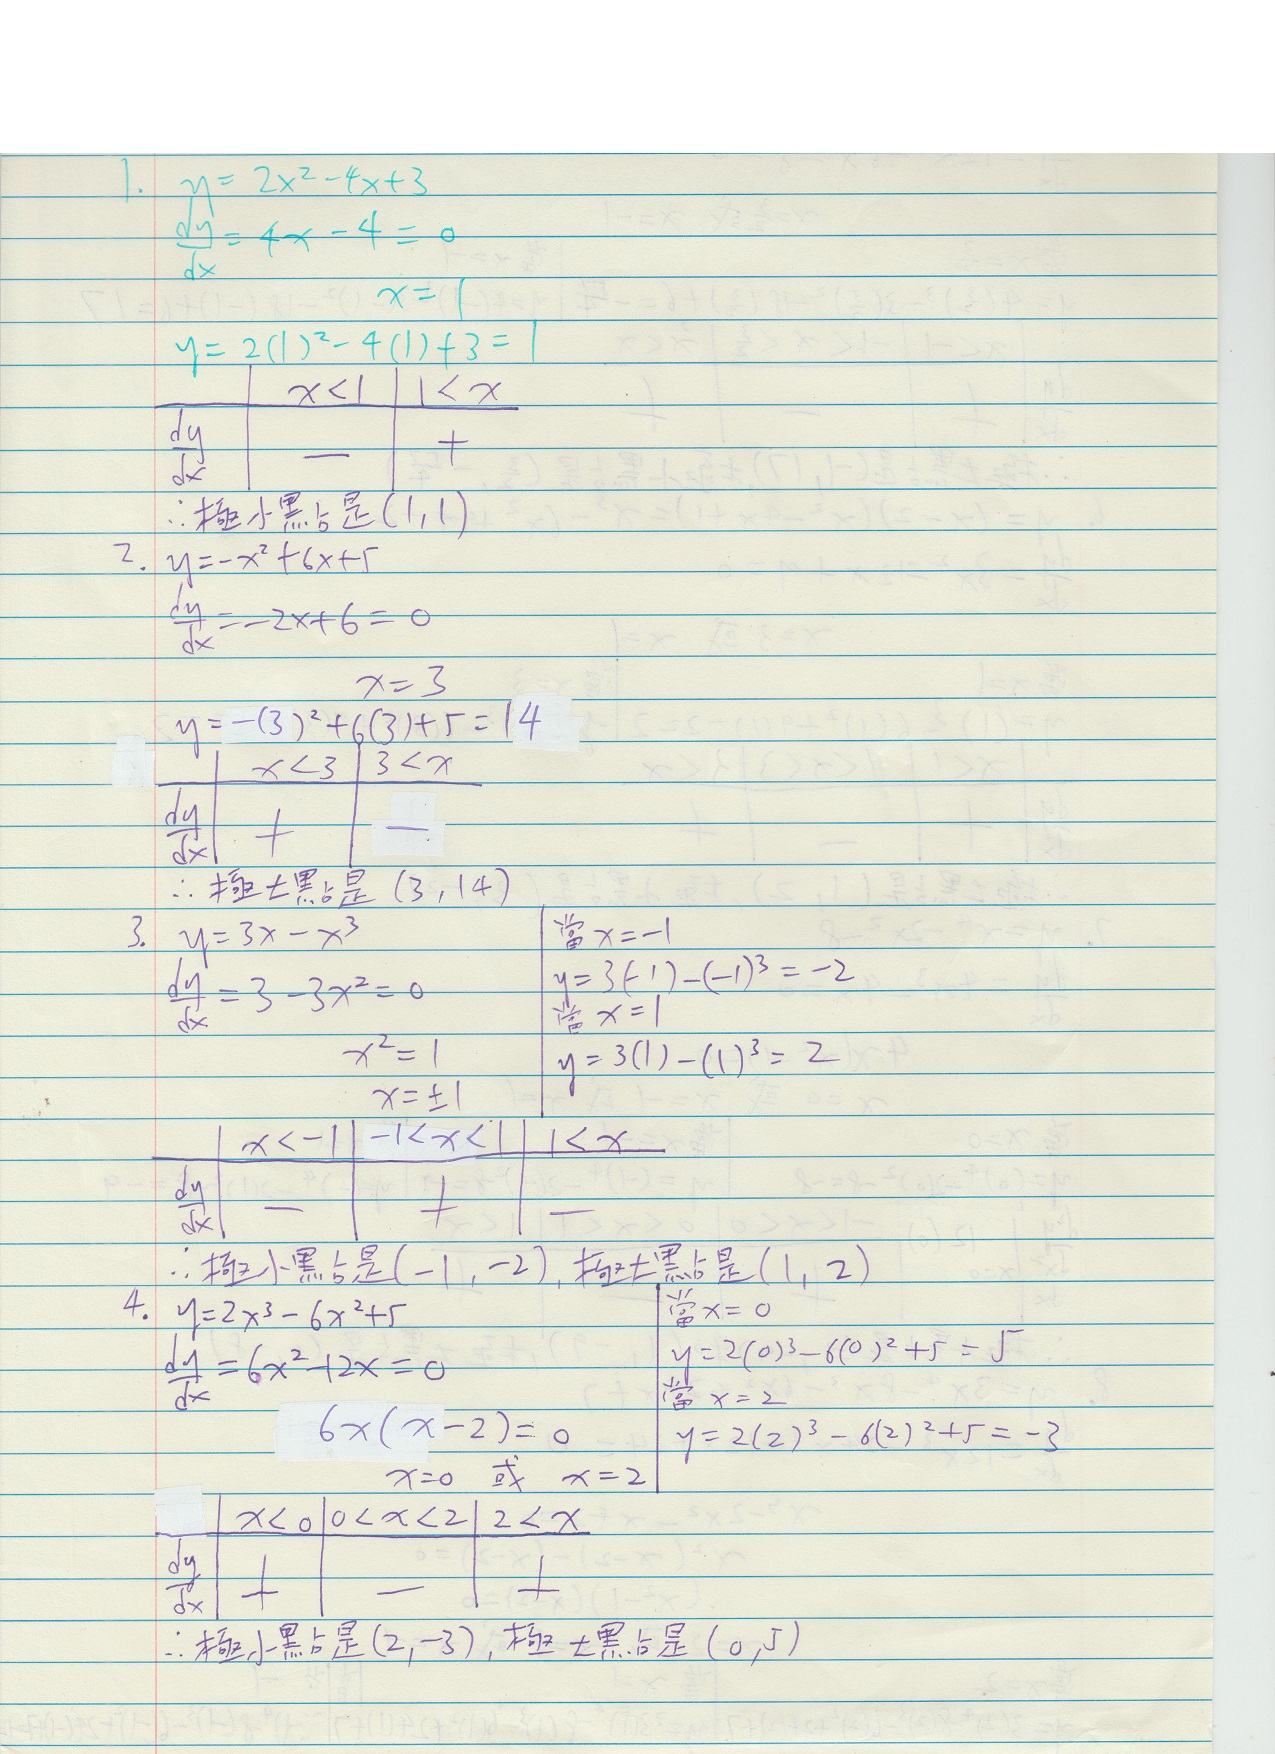 1. y = 2x² - 4x + 3
dy/dx = 4x - 4 = 0
x = 1
y = 2(1)² - 4(1) + 3 = 1
x < 1 | 1 < x
dy/dx | — | +
∴ 極小點是 (1, 1)
2. y = -x² + 6x + 5
dy/dx = -2x + 6 = 0
x = 3
y = -(3)² + 6(3) + 5 = 14
x < 3 | 3 < x
dy/dx | + | —
∴ 極大點是 (3, 14)
3. y = 3x - x³
dy/dx = 3 - 3x² = 0
x² = 1
x = ±1
當 x = -1
y = 3(-1) - (-1)³ = -2
當 x = 1
y = 3(1) - (1)³ = 2
x < -1 | -1 < x < 1 | 1 < x
dy/dx | — | + | —
∴ 極小點是 (-1, -2), 極大點是 (1, 2)
4. y = 2x³ - 6x² + 5
dy/dx = 6x² - 12x = 0
6x(x - 2) = 0
x = 0 或 x = 2
當 x = 0
y = 2(0)³ - 6(0)² + 5 = 5
當 x = 2
y = 2(2)³ - 6(2)² + 5 = -3
x < 0 | 0 < x < 2 | 2 < x
dy/dx | + | — | +
∴ 極小點是 (2, -3), 極大點是 (0, 5)